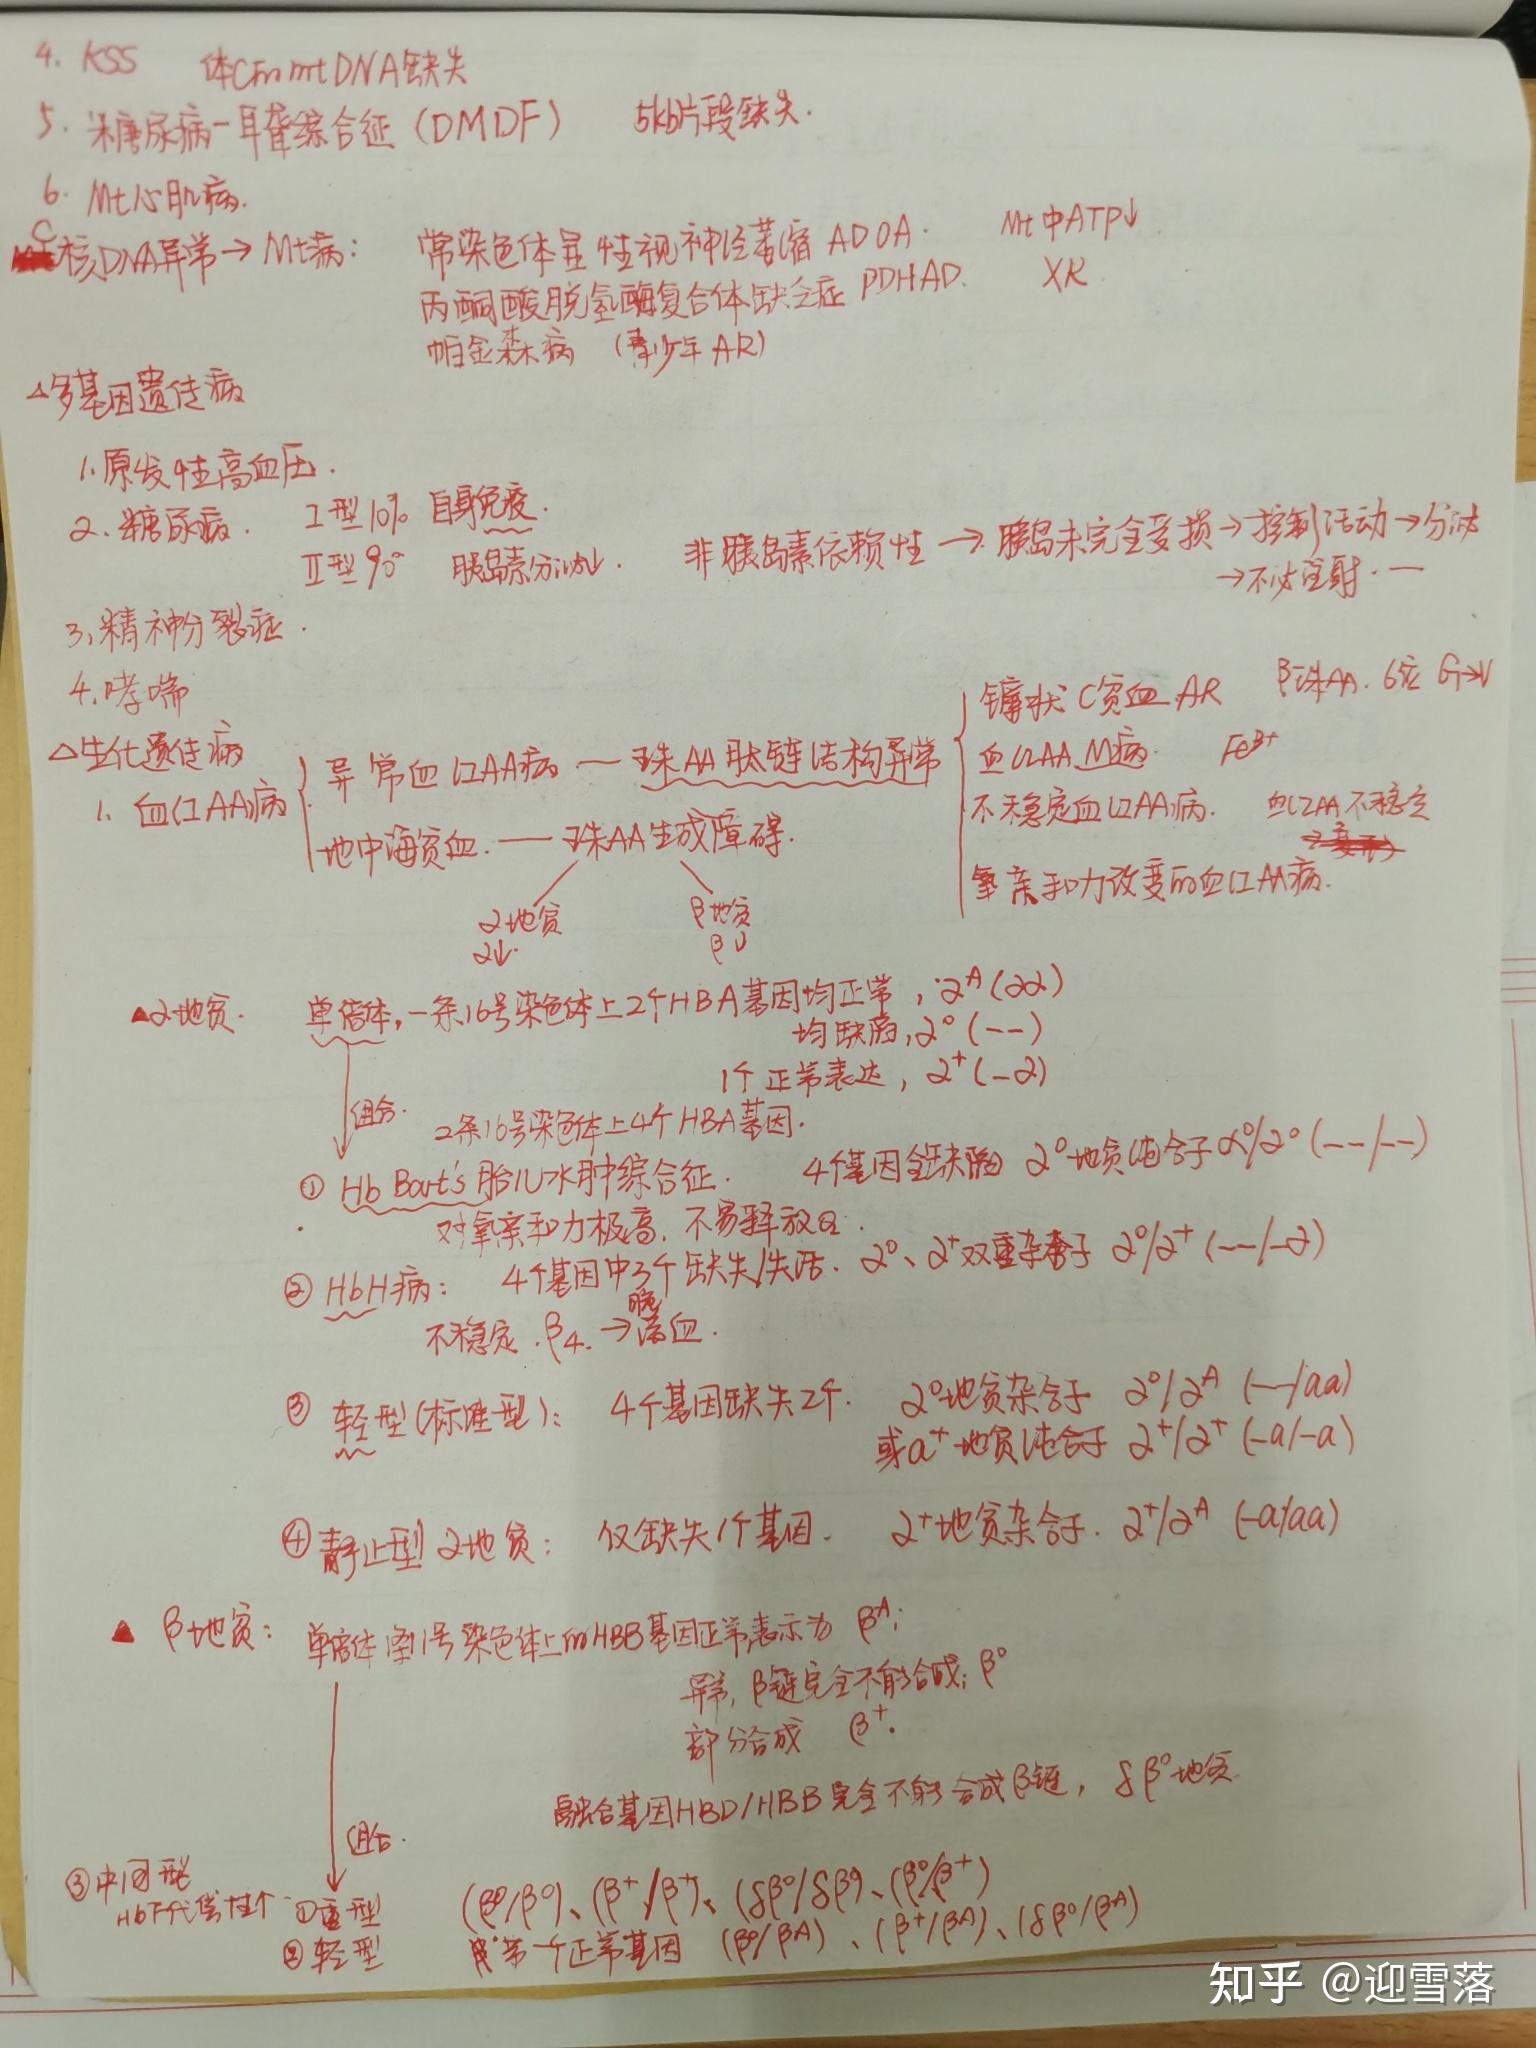 4. KSS 体C中mtDNA缺失
5. 糖尿病-耳聋综合征(DMDF) 5kb片段缺失.
6. Mt心肌病.
核DNA异常→Mt病: 常染色体显性视神经萎缩 ADOA. Mt中ATP↓
丙酮酸脱氢酶复合体缺乏症 PDHAD. XR
帕金森病 (青少年AR)
△多基因遗传病
1.原发性高血压.
2.糖尿病. I型10% 自身免疫.
II型90% 胰岛素分泌↓. 非胰岛素依赖性→胰岛未完全受损→控制活动→分泌
→不必注射.
3.精神分裂症.
4.哮喘
△生化遗传病
1. 血红AA病
异常血红AA病 — 珠AA肽链结构异常
镰状C贫血 AR β珠AA. 6位 G→V
血红AA M病. Fe³⁺
不稳定血红AA病. 血红AA不稳定
氧亲和力改变的血红AA病.
地中海贫血. — 珠AA生成障碍.
α地贫 β地贫
α↓. β↓
▲α地贫. 单倍体,一条16号染色体上2个HBA基因均正常, αᴬ(αα)
均缺陷, α⁰(--)
1个正常表达, α⁺(-α)
组合.
2条16号染色体上4个HBA基因.
① Hb Bart's胎儿水肿综合征. 4个基因全缺陷 α⁰地贫纯合子 α⁰/α⁰ (--/--)
对氧亲和力极高, 不易释放O₂.
② HbH病: 4个基因中3个缺失/失活. α⁰、α⁺双重杂合子 α⁰/α⁺ (--/-α)
不稳定. β₄. →溶血.
③ 轻型(标准型): 4个基因缺失2个. α⁰地贫杂合子 α⁰/αᴬ (--/aa)
或a⁺地贫纯合子 α⁺/α⁺ (-a/-a)
④ 静止型α地贫: 仅缺失1个基因. α⁺地贫杂合子. α⁺/αᴬ (-a/aa)
▲ β地贫: 单倍体 条11号染色体上的HBB基因正常表示为 βᴬ;
异常, β链完全不能合成; β⁰
部分合成 β⁺.
融合基因HBD/HBB完全不能合成β链, δβ⁰地贫.
组合.
③中间型
HbF代偿性个
①重型 (β⁰/β⁰)、(β⁺/β⁺)、(δβ⁰/δβ⁰)、(β⁰/β⁺)
②轻型 带一个正常基因 (β⁰/βᴬ)、(β⁺/βᴬ)、(δβ⁰/βᴬ)
知乎 @迎雪落